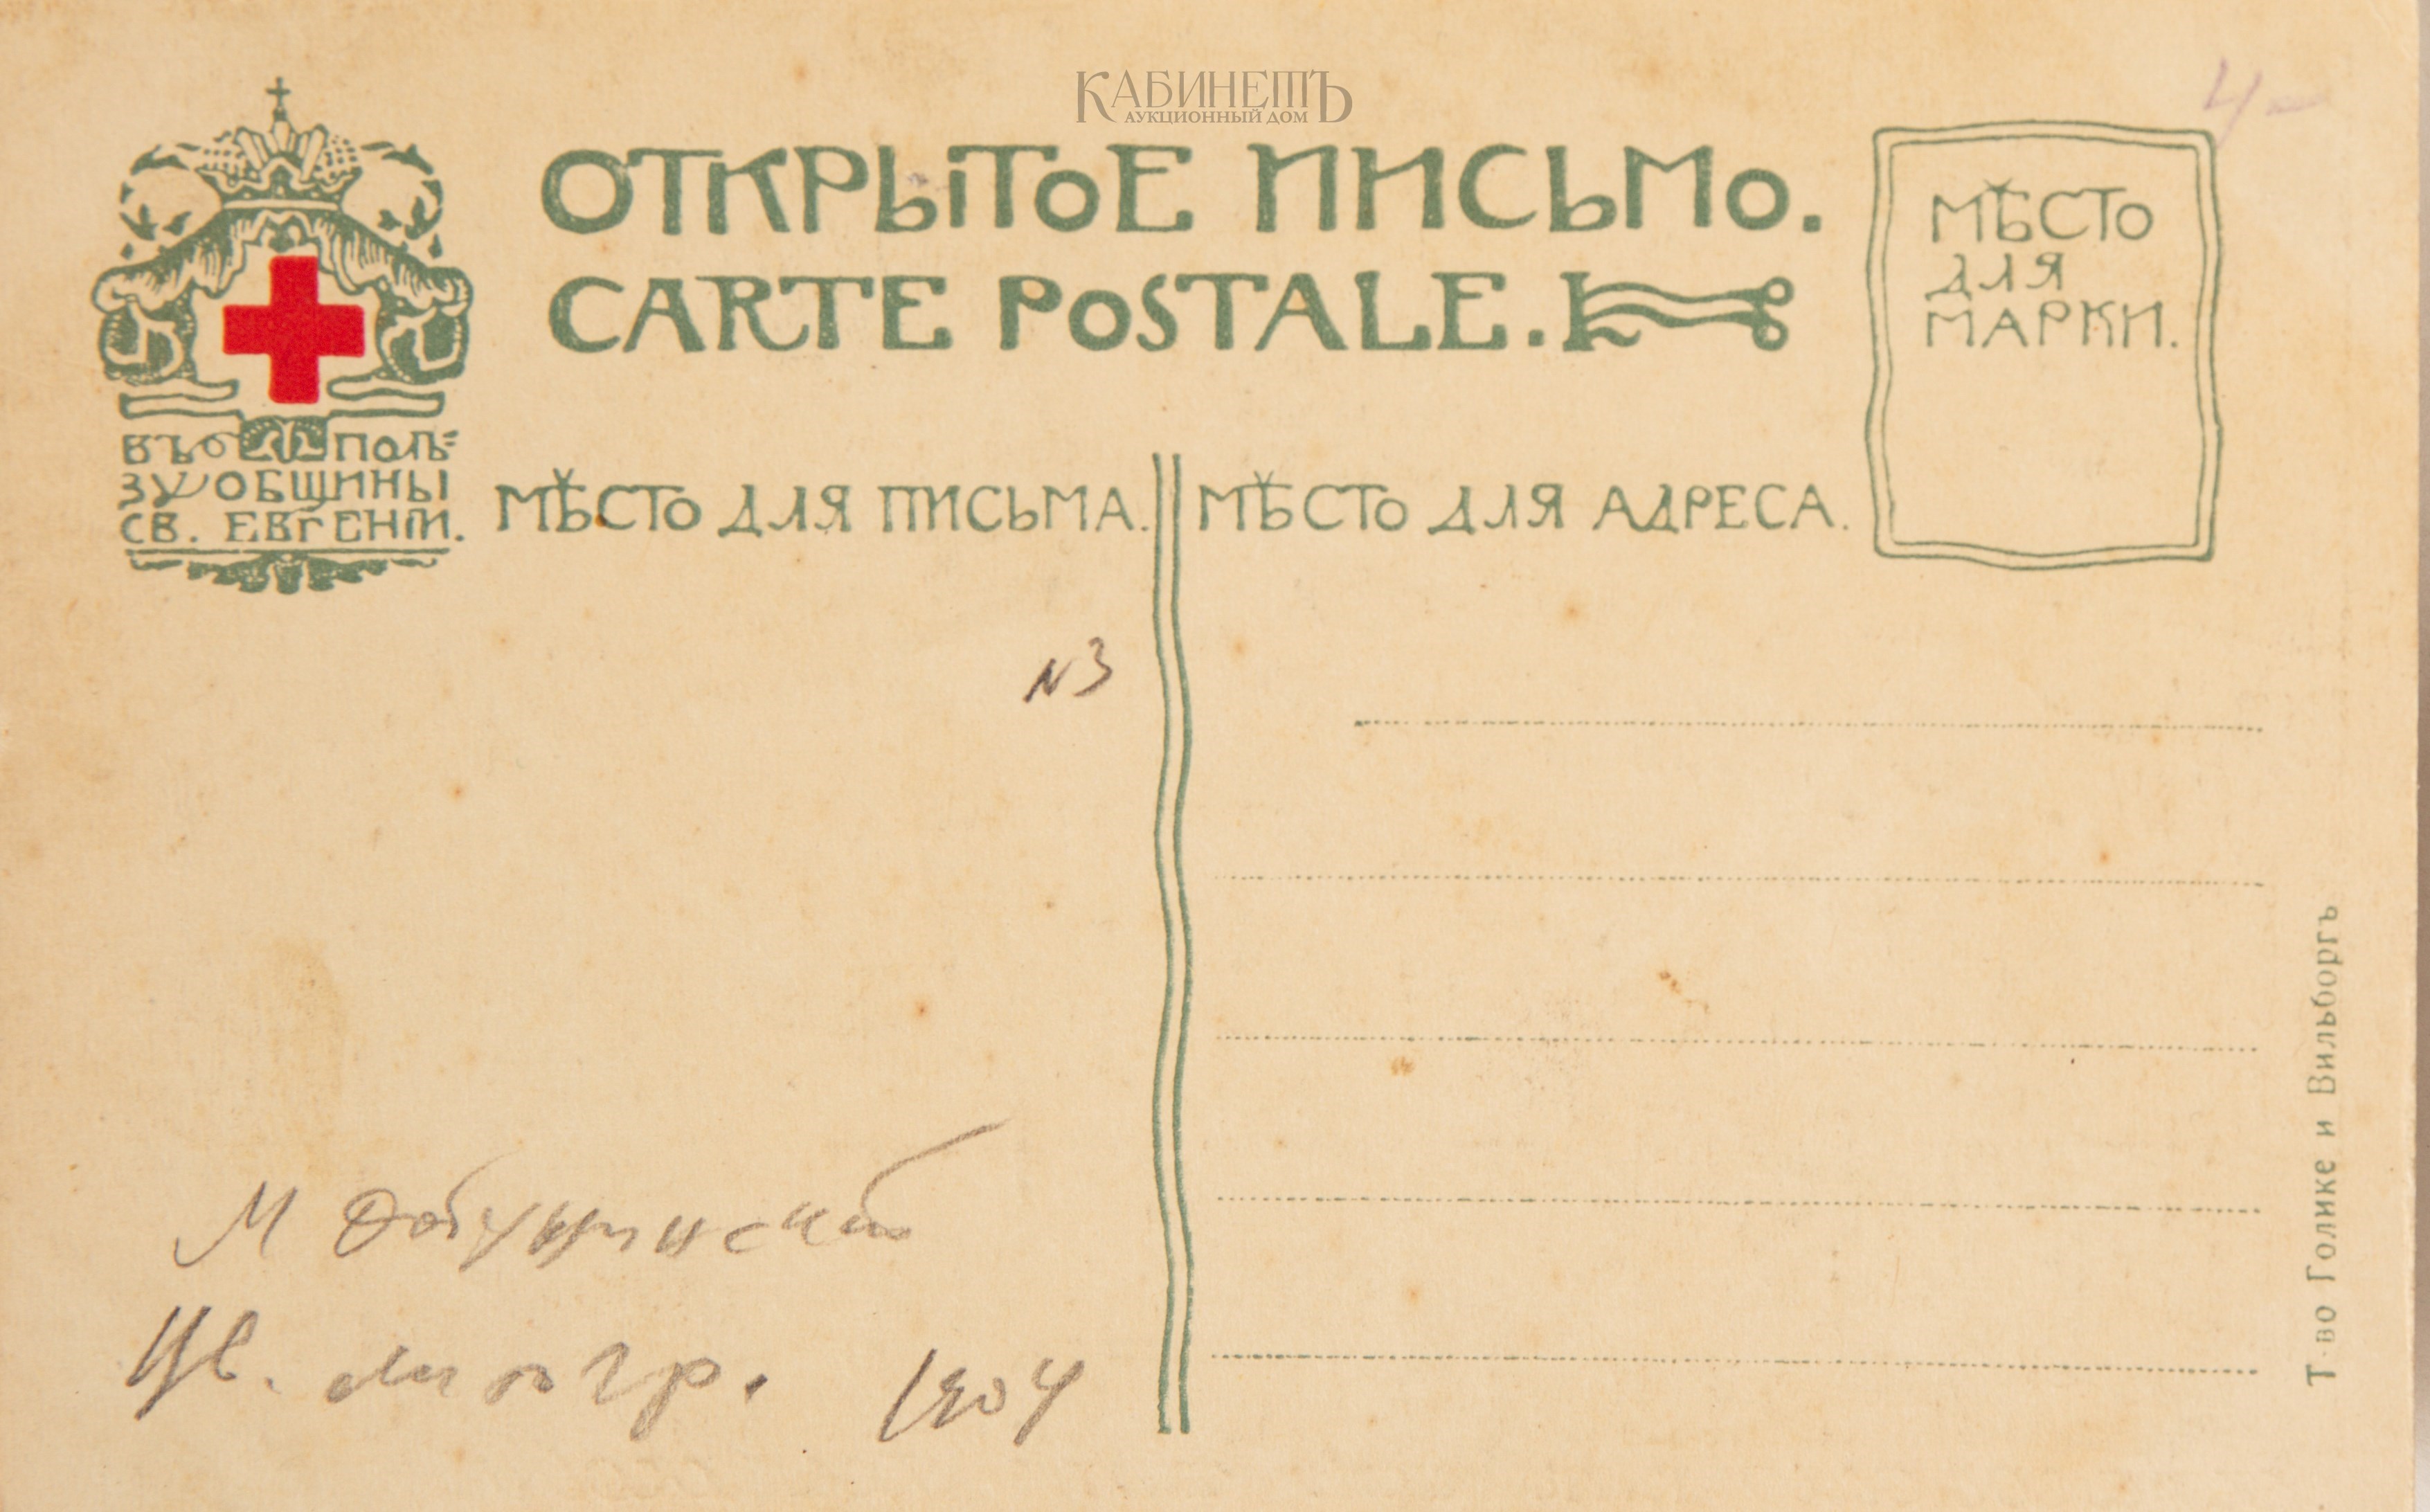 КАБИНЕТЪ
АУКЦИОННЫЙ ДОМ
4-
ОТКРЫТОЕ ПИСЬМО.
CARTE POSTALE.
МѢСТО
ДЛЯ
МАРКИ.
ВЪ ПОЛЬ=
ЗУ ОБЩИНЫ
СВ. ЕВГЕНІИ.
МѢСТО ДЛЯ ПИСЬМА.
МѢСТО ДЛЯ АДРЕСА.
N3
М Добужинский
Цв. литогр. 1904
Т-во Голике и Вильборгъ